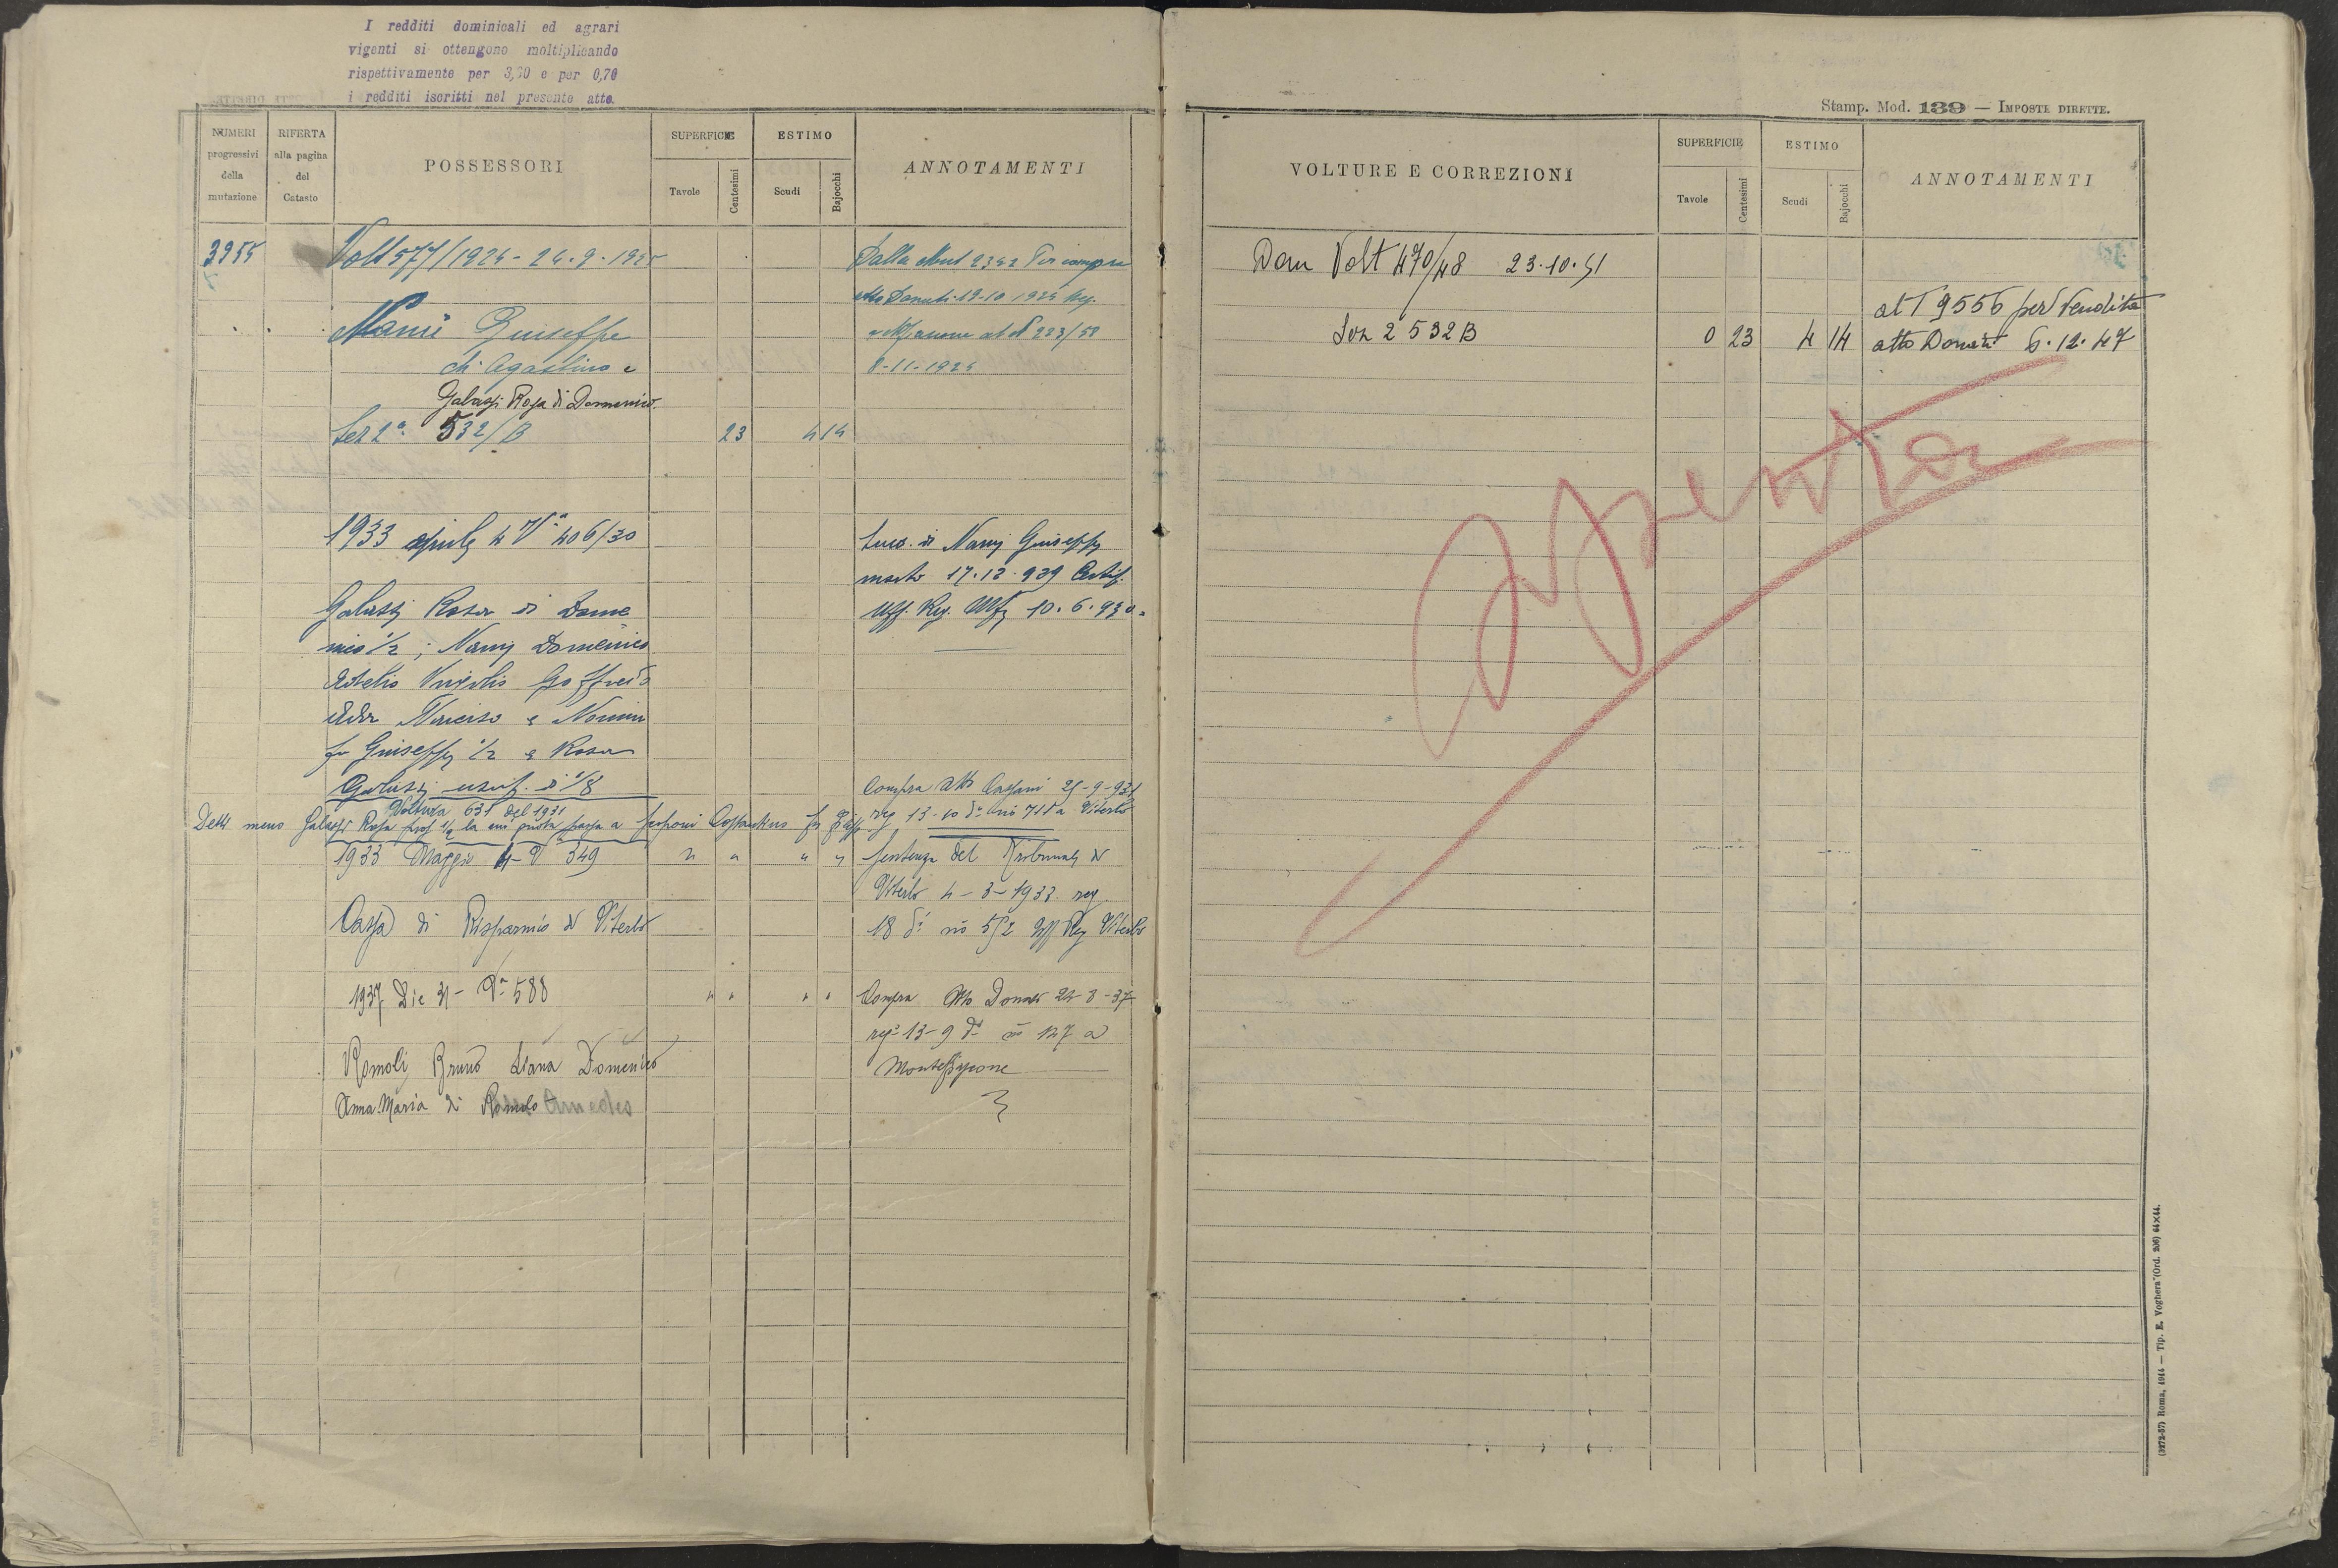 I redditi dominicali ed agrari
vigenti si ottengono moltiplicando
rispettivamente per 3,20 e per 0,70
i redditi iscritti nel presente atto.
NUMERI progressivi della mutazione
RIFERTA alla pagina del Catasto
POSSESSORI
SUPERFICIE
Tavole
Centesimi
ESTIMO
Scudi
Bajocchi
ANNOTAMENTI
3955 Volt 577/1924 - 24.9.1925
Dalla Mut 2342 Per compra
atto Donati 19-10 1924 Reg.
Montefiascone al N 223/58
8-11-1924
Nanni Giuseppe
di Agostino e
Galassi Rosa di Domenico
Sez 2ª 532/B 23 4 14
1933 aprile 4 Vª 406/30
Succ. di Nanni Giuseppe
morto 17.12.929 Certif.
Uff. Reg. 10.6.930
Galassi Rosa di Dome
nico 1/2; Nanni Domenico
Virgilio Goffredo
Ada Narciso e
fu Giuseppe 1/2 e Rosa
Galassi usuf. di 1/8
Compra atto 25-9-931
reg 13-10 dº nº 711 a Viterbo
Voltura 631 del 1931
Detti meno Galassi Rosa prop 1/2 la cui quota passa a Costantino fu
1933 Maggio 4 - V 349 " " " "
Sentenza del Tribunale di
Viterbo 4-3-1933 reg
18 dº nº 552 Uff Reg Viterbo
Cassa di Risparmio di Viterbo
1937 Dic 31 - Vª 588 " " " "
Compra Atto Donati 24-8-37
regº 13-9 dº nº 127 a
Montefiascone
Romoli Bruno Liana Domenico
Anna Maria di Romolo Amedeo
Stamp. Mod. 139 — IMPOSTE DIRETTE.
VOLTURE E CORREZIONI
SUPERFICIE
Tavole
Centesimi
ESTIMO
Scudi
Bajocchi
ANNOTAMENTI
Dom Volt 470/48 23.10.51
al T 9556 per vendita
Sez 2 532 B 0 23 4 14 atto Donati 6.12.47
Spenta
(3272-57) Roma, 1914 — Tip. E. Voghera (Ord. 206) 64×44.